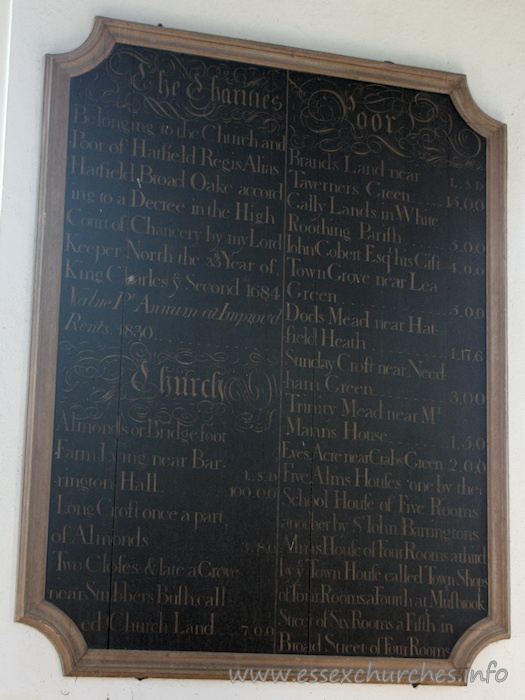 The Charities
Belonging to the Church and
Poor of Hatfield Regis Alias
Hatfield Broad Oake accord
ing to a Decree in the High
Court of Chancery by my Lord
Keeper North the 33 Year of
King Charles ye Second 1684
Value Pr Annum at Improved
Rents, 1830
Church
Almonds or Bridgefoot
Farm Lying near Bar-
-rington Hall
L. S. D
100.0.0
Long Croft once a part
of Almonds 3.8.0
Two Closes & late a Grove
near Stubbers Bush, call
ed Church Land 7.0.0
Poor
Brands Land near
L. S. D
Taverners Green 15.0.0
Cally Lands in White
Roothing Parish 5.0.0
John Cobert Esqr his Gift 4.0.0
Town Grove near Lea
Green 5.0.0
Dods Mead near Hat-
field Heath 1.17.6
Sunday Croft near Need-
ham Green 3.0.0
Trinity Mead near Mr
Manns House 1.5.0
Eves Acre near Crabs Green 2.0.0
Five Alms Houses one by the
School House of Five Rooms
another by Sr John Barringtons
Alms House of Four Rooms a third
by ye Town House called Town Shops
of Four Rooms a Fourth at Musbrook
Street of Six Rooms a Fifth in
Broad Street of Four Rooms
www.essexchurches.info